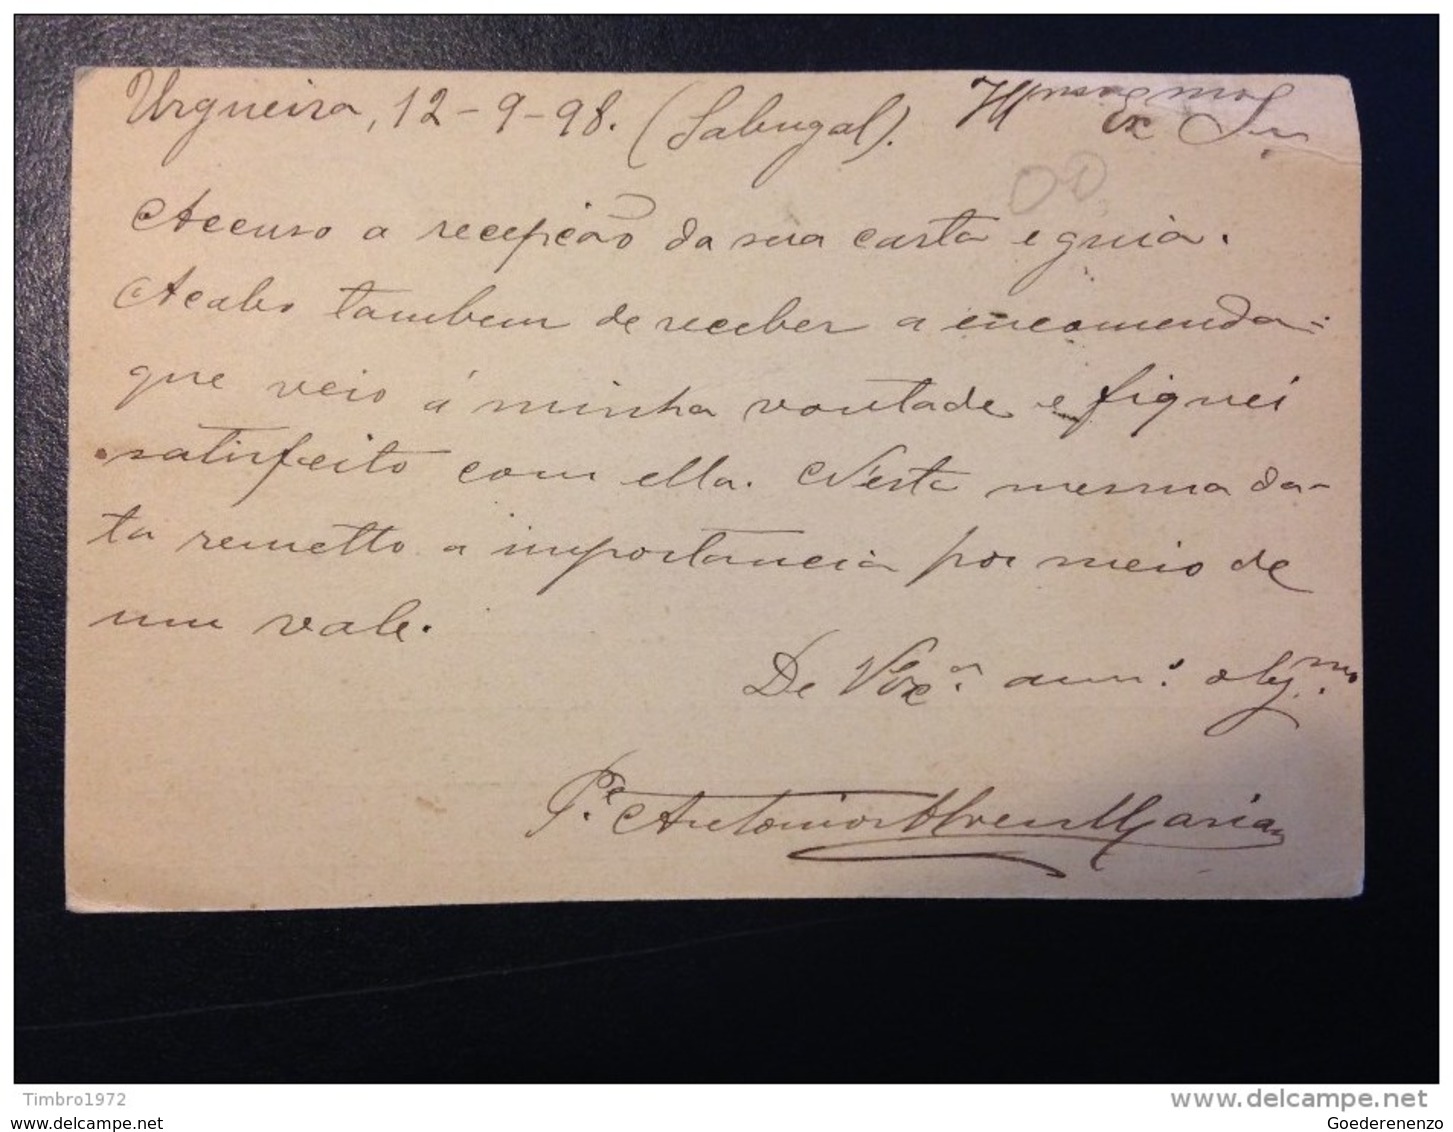 Urgueira, 12-9-98. (Sabugal). Ill.mos e Ex.mos Snr
Accuso a recepição da sua carta e guia.
Acabo tambem de receber a encomenda
que veio á minha vontade e fiquei
satisfeito com ella. N'esta mesma da-
ta remetto a importancia por meio de
um vale.
De V. Ex.a am.o obg.mo
P.e Antonio Alves Maria
Timbro1972
www.delcampe.net
www.delcampe.net
Goederenenzo